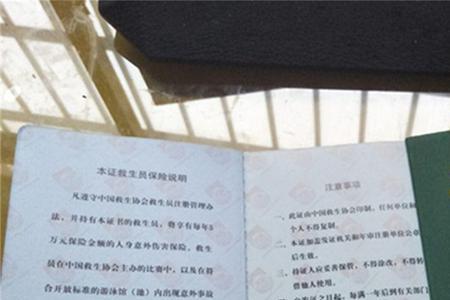 本证救生员保险说明
凡遵守中国救生协会救生员注册管理办
法，并持有本证书的救生员，将享有每年5
万元保险金额的人身意外伤害保险。救生
员在中国救生协会主办的比赛中，以及在符
合开放标准的游泳馆（池）内出现意外事故
注意事项
一、此证由中国救生协会印制，任何单位
个人不得复制。
二、本证加盖发证机关和年审注册单位公章
后生效。
三、持证人应妥善保管，不得涂改，不得转
借他人使用。
之日起，每满一年后到有关部门